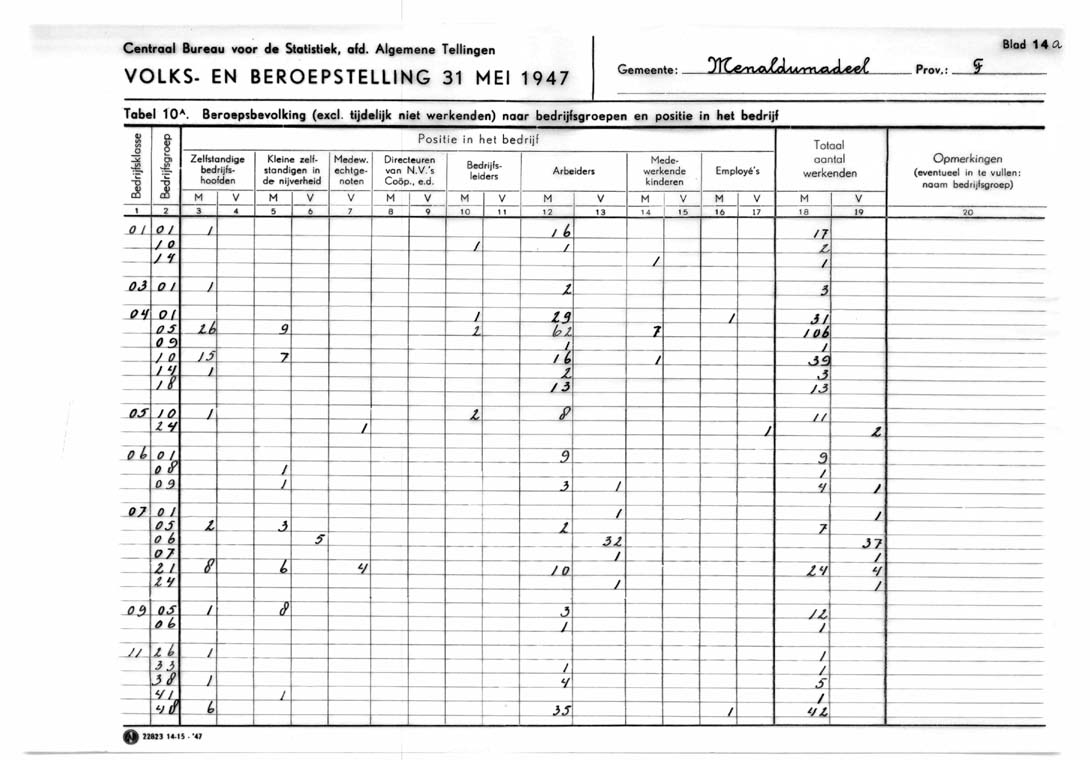 Centraal Bureau voor de Statistiek, afd. Algemene Tellingen
Blad 14a
VOLKS- EN BEROEPSTELLING 31 MEI 1947
Gemeente: Menaldumadeel Prov.: F
Tabel 10A. Beroepsbevolking (excl. tijdelijk niet werkenden) naar bedrijfsgroepen en positie in het bedrijf
Bedrijfsklasse Bedrijfsgroep Positie in het bedrijf Totaal aantal werkenden Opmerkingen (eventueel in te vullen: naam bedrijfsgroep)
Zelfstandige bedrijfs-hoofden Kleine zelf-standigen in de nijverheid Medew. echtge-noten Directeuren van N.V.'s Coöp., e.d. Bedrijfs-leiders Arbeiders Mede-werkende kinderen Employé's
M V M V V M V M V M V M V M V M V
1 2 3 4 5 6 7 8 9 10 11 12 13 14 15 16 17 18 19 20
01 01 1 16 17
10 1 1 2
14 1 1
03 01 1 2 3
04 01 1 29 1 31
05 26 9 2 62 7 106
09 1 1
10 15 7 16 1 39
14 1 2 3
18 13 13
05 10 1 2 8 11
24 1 1 2
06 01 9 9
08 1 1
09 1 3 1 4 1
07 01 1 1
05 2 3 2 7
06 5 32 37
07 1 1
21 8 6 4 10 24 4
24 1 1
09 05 1 8 3 12
06 1 1
11 26 1 1
33 1 1
38 1 4 5
41 1 1
48 6 35 1 42
N 22823 14-15 - '47